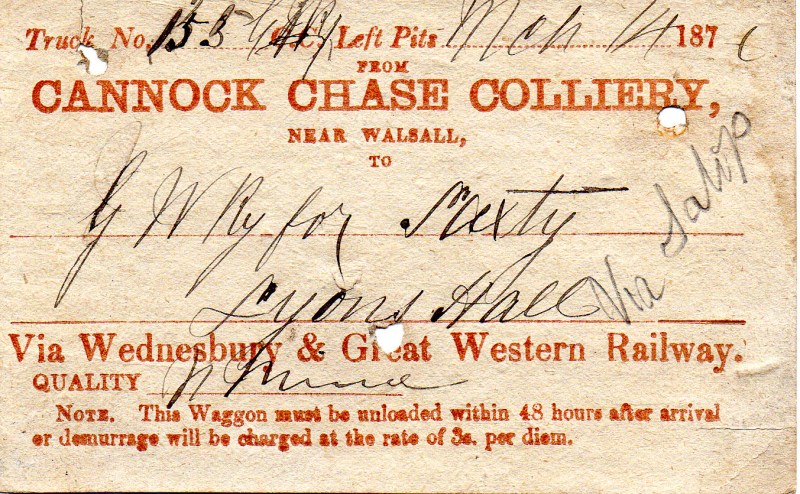 Truck No. 155 C.C. Left Pits Mch 14 187
FROM
CANNOCK CHASE COLLIERY,
NEAR WALSALL,
TO
G W Ry for
Lyons Hall Via Salop
Via Wednesbury & Great Western Railway.
QUALITY
NOTE. This Waggon must be unloaded within 48 hours after arrival
or demurrage will be charged at the rate of 3s. per diem.